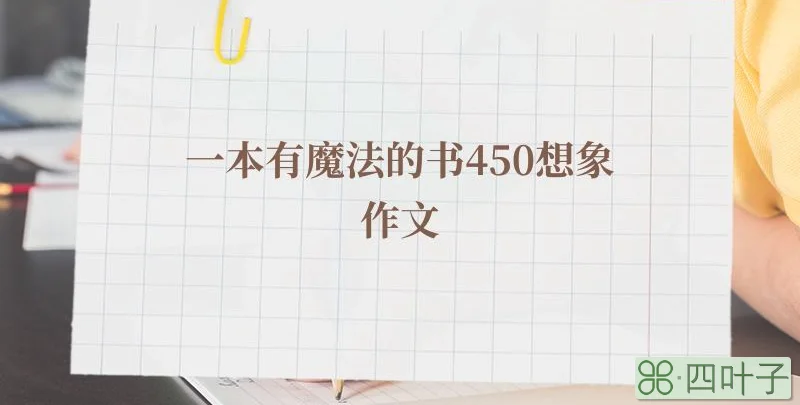 一本有魔法的书450想象
作文
四叶子